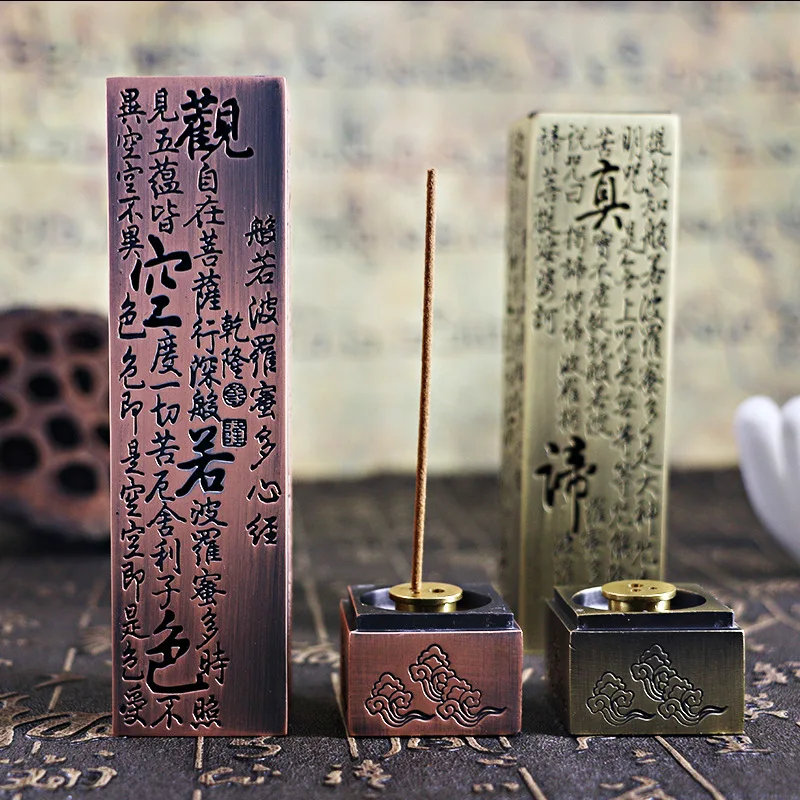 般若波羅蜜多心經
乾隆
觀自在菩薩行深般若波羅蜜多時照
見五蘊皆空度一切苦厄舍利子色不
異空空不異色色即是空空即是色受
提故知般若波羅蜜多是大神
明咒是無上咒是無等等咒能除
苦真實不虛故說般若波羅蜜多
說咒曰揭諦揭諦波羅揭諦
諦菩提薩婆訶